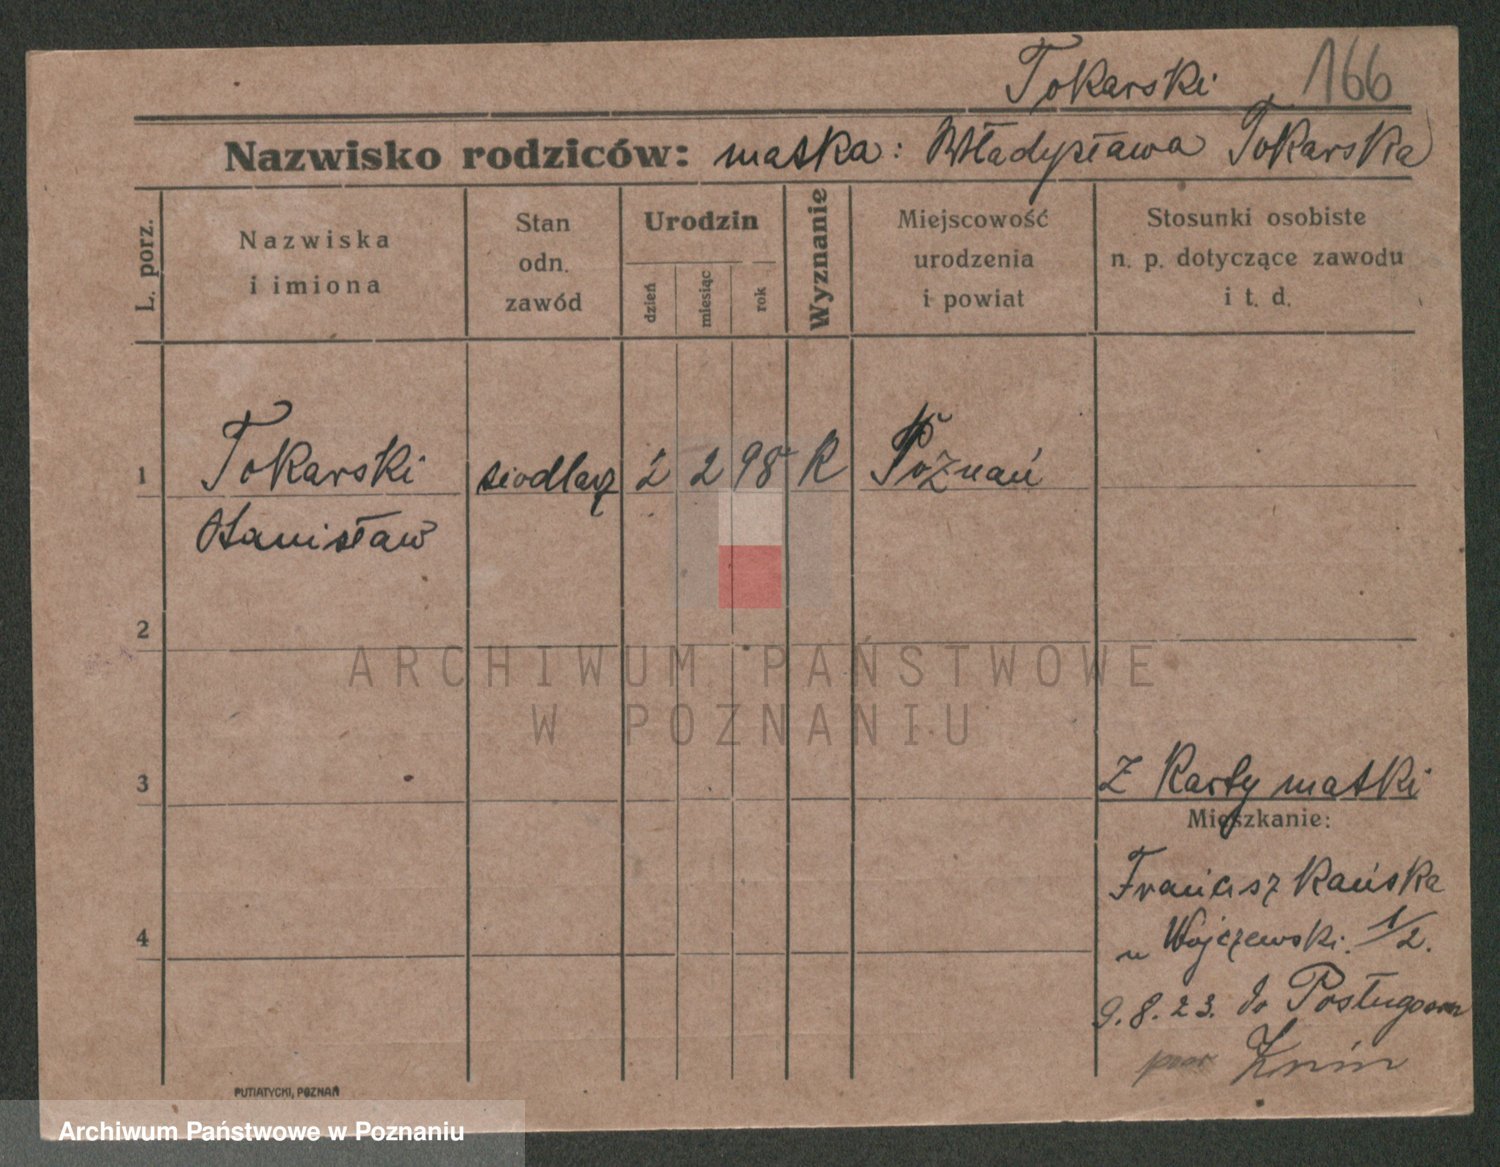 Tokarski 166
Nazwisko rodziców: matka: Władysława Tokarska
L. porz.
Nazwiska
i imiona
Stan
odn.
zawód
Urodzin
dzień
miesiąc
rok
Wyznanie
Miejscowość
urodzenia
i powiat
Stosunki osobiste
n. p. dotyczące zawodu
i t. d.
1 Tokarski siodlarz 2 2 98 R Poznań
Stanisław
2
ARCHIWUM PAŃSTWOWE
W POZNANIU
3 Z Karty matki
Mieszkanie:
Franciszkańska
u Wojczewski. 1/2.
4
9.8.23. do
pow Żnin
PUTIATYCKI, POZNAŃ
Archiwum Państwowe w Poznaniu